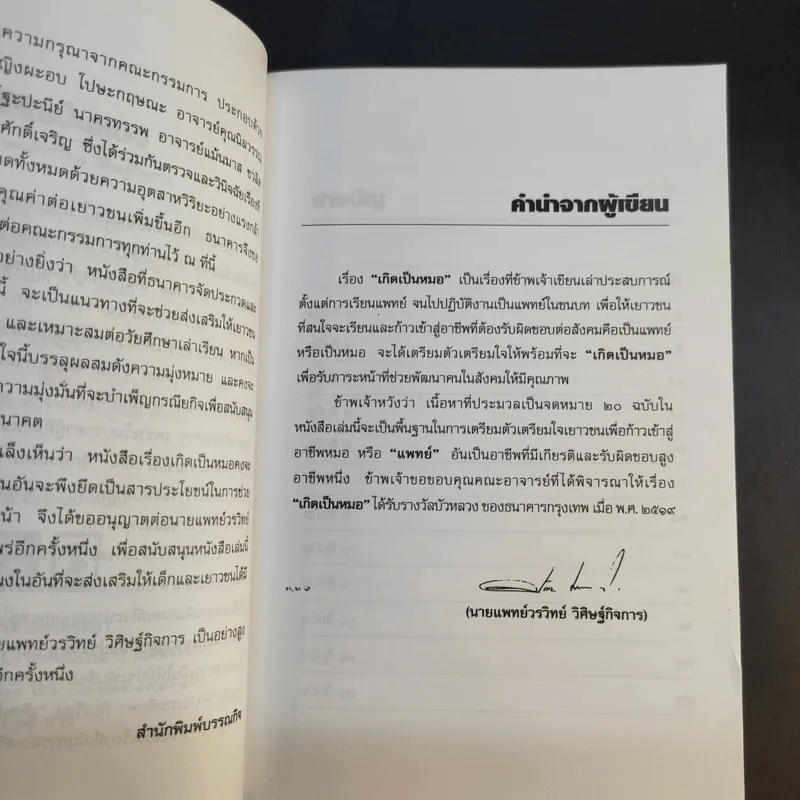 ความกรุณาจากคณะกรรมการ ประกอบด้วย
ญิงผะอบ โปษะกฤษณะ อาจารย์คุณนิลวรรณ
ฐะปะนีย์ นาครทรรพ อาจารย์แม้นมาส ชวลิต
ศักดิ์เจริญ ซึ่งได้ร่วมกันตรวจและวินิจฉัยเรื่องที่
ดทั้งหมดด้วยความอุตสาหวิริยะอย่างแรงกล้า
คุณค่าต่อเยาวชนเพิ่มขึ้นอีก ธนาคารจึงขอ
ต่อคณะกรรมการทุกท่านไว้ ณ ที่นี้
อย่างยิ่งว่า หนังสือที่ธนาคารจัดประกวดและ
นี้ จะเป็นแนวทางที่จะช่วยส่งเสริมให้เยาวชน
และเหมาะสมต่อวัยศึกษาเล่าเรียน หากเป็น
ใจนี้บรรลุผลสมดังความมุ่งหมาย และคงจะ
ความมุ่งมั่นที่จะบำเพ็ญกรณียกิจเพื่อสนับสนุน
นาคต
เล็งเห็นว่า หนังสือเรื่องเกิดเป็นหมอคงจะ
นอันจะพึงยึดเป็นสารประโยชน์ในการช่วย
น้า จึงได้ขออนุญาตต่อนายแพทย์วรวิทย์
พร่อีกครั้งหนึ่ง เพื่อสนับสนุนหนังสือเล่มนี้
นงในอันที่จะส่งเสริมให้เด็กและเยาวชนได้มี
ยแพทย์วรวิทย์ วิศิษฐ์กิจการ เป็นอย่างสูง
อีกครั้งหนึ่ง
สำนักพิมพ์บรรณกิจ
คำนำจากผู้เขียน
เรื่อง “เกิดเป็นหมอ” เป็นเรื่องที่ข้าพเจ้าเขียนเล่าประสบการณ์
ตั้งแต่การเรียนแพทย์ จนไปปฏิบัติงานเป็นแพทย์ในชนบท เพื่อให้เยาวชน
ที่สนใจจะเรียนและก้าวเข้าสู่อาชีพที่ต้องรับผิดชอบต่อสังคมคือเป็นแพทย์
หรือเป็นหมอ จะได้เตรียมตัวเตรียมใจให้พร้อมที่จะ “เกิดเป็นหมอ”
เพื่อรับภาระหน้าที่ช่วยพัฒนาคนในสังคมให้มีคุณภาพ
ข้าพเจ้าหวังว่า เนื้อหาที่ประมวลเป็นจดหมาย ๒๐ ฉบับใน
หนังสือเล่มนี้จะเป็นพื้นฐานในการเตรียมตัวเตรียมใจเยาวชนเพื่อก้าวเข้าสู่
อาชีพหมอ หรือ “แพทย์” อันเป็นอาชีพที่มีเกียรติและรับผิดชอบสูง
อาชีพหนึ่ง ข้าพเจ้าขอขอบคุณคณะอาจารย์ที่ได้พิจารณาให้เรื่อง
“เกิดเป็นหมอ” ได้รับรางวัลบัวหลวง ของธนาคารกรุงเทพ เมื่อ พ.ศ. ๒๕๑๙
(นายแพทย์วรวิทย์ วิศิษฐ์กิจการ)